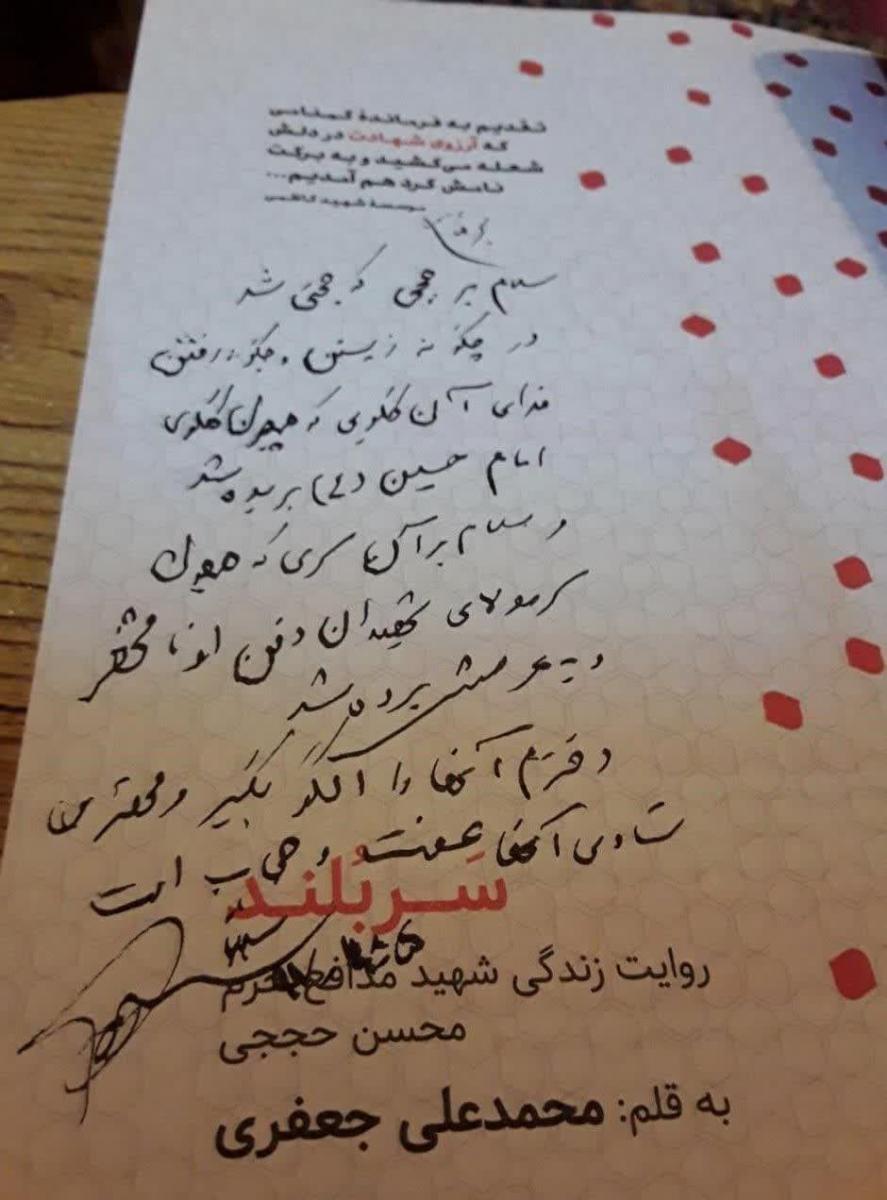 تقدیم به فرماندهٔ گمنامی
که آرزوی شهادت در دلش
شعله می‌کشید و به برکت
نامش گرد هم آمدیم...
موسسهٔ شهید کاظمی
سلام بر حججی که حجتی شد
در چگونه زیستن و چگونه رفتن
فدای آن گلویی که همچون گلوی
امام حسین (ع) بریده شد
و سلام بر آن سری که همچون
سر مولای شهیدان دفن آن نا
و به عرش برده شد
دخترم آنها را الگو بگیر و مهمترین
شادی آنها عفت و حجاب است
سربُلند
روایت زندگی شهید مدافع حرم
محسن حججی
به قلم: محمدعلی جعفری